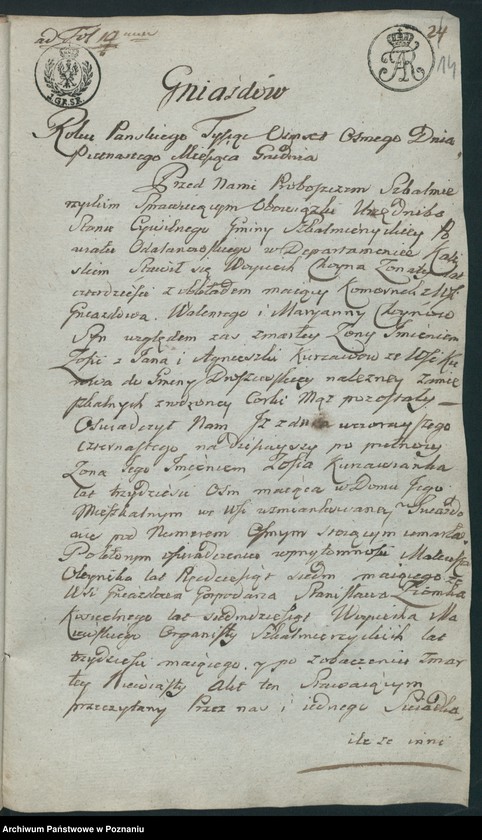 ad Fol 12
24
14
2 GR. SR.
FAR
Gniazdów
Roku Panskiego Tysiąc Osmset Osmego Dnia
Pietnastego Miesiąca Grudnia
Przed Nami Proboszczem Szkalmie
rzyckim Sprawuiącym Obowiązki Urzędnika
Stanu Cywilnego Gminy Szkalmierzyckiey Po
wiatu Odalanowskiego w Departamencie Kali
skim Stawił się Woyciech Choyna Żonaty lat
czterdzieści z okładem maiący Komornik z Wsi
Gniazdowa. Walentego i Maryanny Choynów
Syn względem zas zmarłey Żony Imieniem
Zofii z Jana i Agnieszki Kurzawów ze Wsi Ku
rowa do Gminy Droszewskiey należney Zamie
szkalnych zrodzoney Corki Mąż pozostały
Oświadczył Nam Iż z dnia wczorayszego
czternastego na dzisieyszy po pułnocy
Żona Jego Imieniem Zofia Kurzawianka
lat trzydzieści Osm maiąca w Domu Jego
Mieszkalnym we Wsi wzmiankowaney Gniazdo
wie pod Numerem Osmym stoiącym umarła.
Po którym oświadczeniu w przytomności Mateusza
Oleynika lat Pięćdziesiąt siedm maiącego ze
Wsi Gniazdowa Gospodarza Stanisława Ziomka
Kościelnego lat siedmdziesiąt Woyciecha Ma
iewskiego Organisty Szkalmierzyckich lat
trzydzieści maiącego y po zobaczeniu zmar
łey Niewiasty Akt ten Stawaiącym
przeczytany Przez nas i iednego Swiadka,
ile że inni
Archiwum Państwowe w Poznaniu